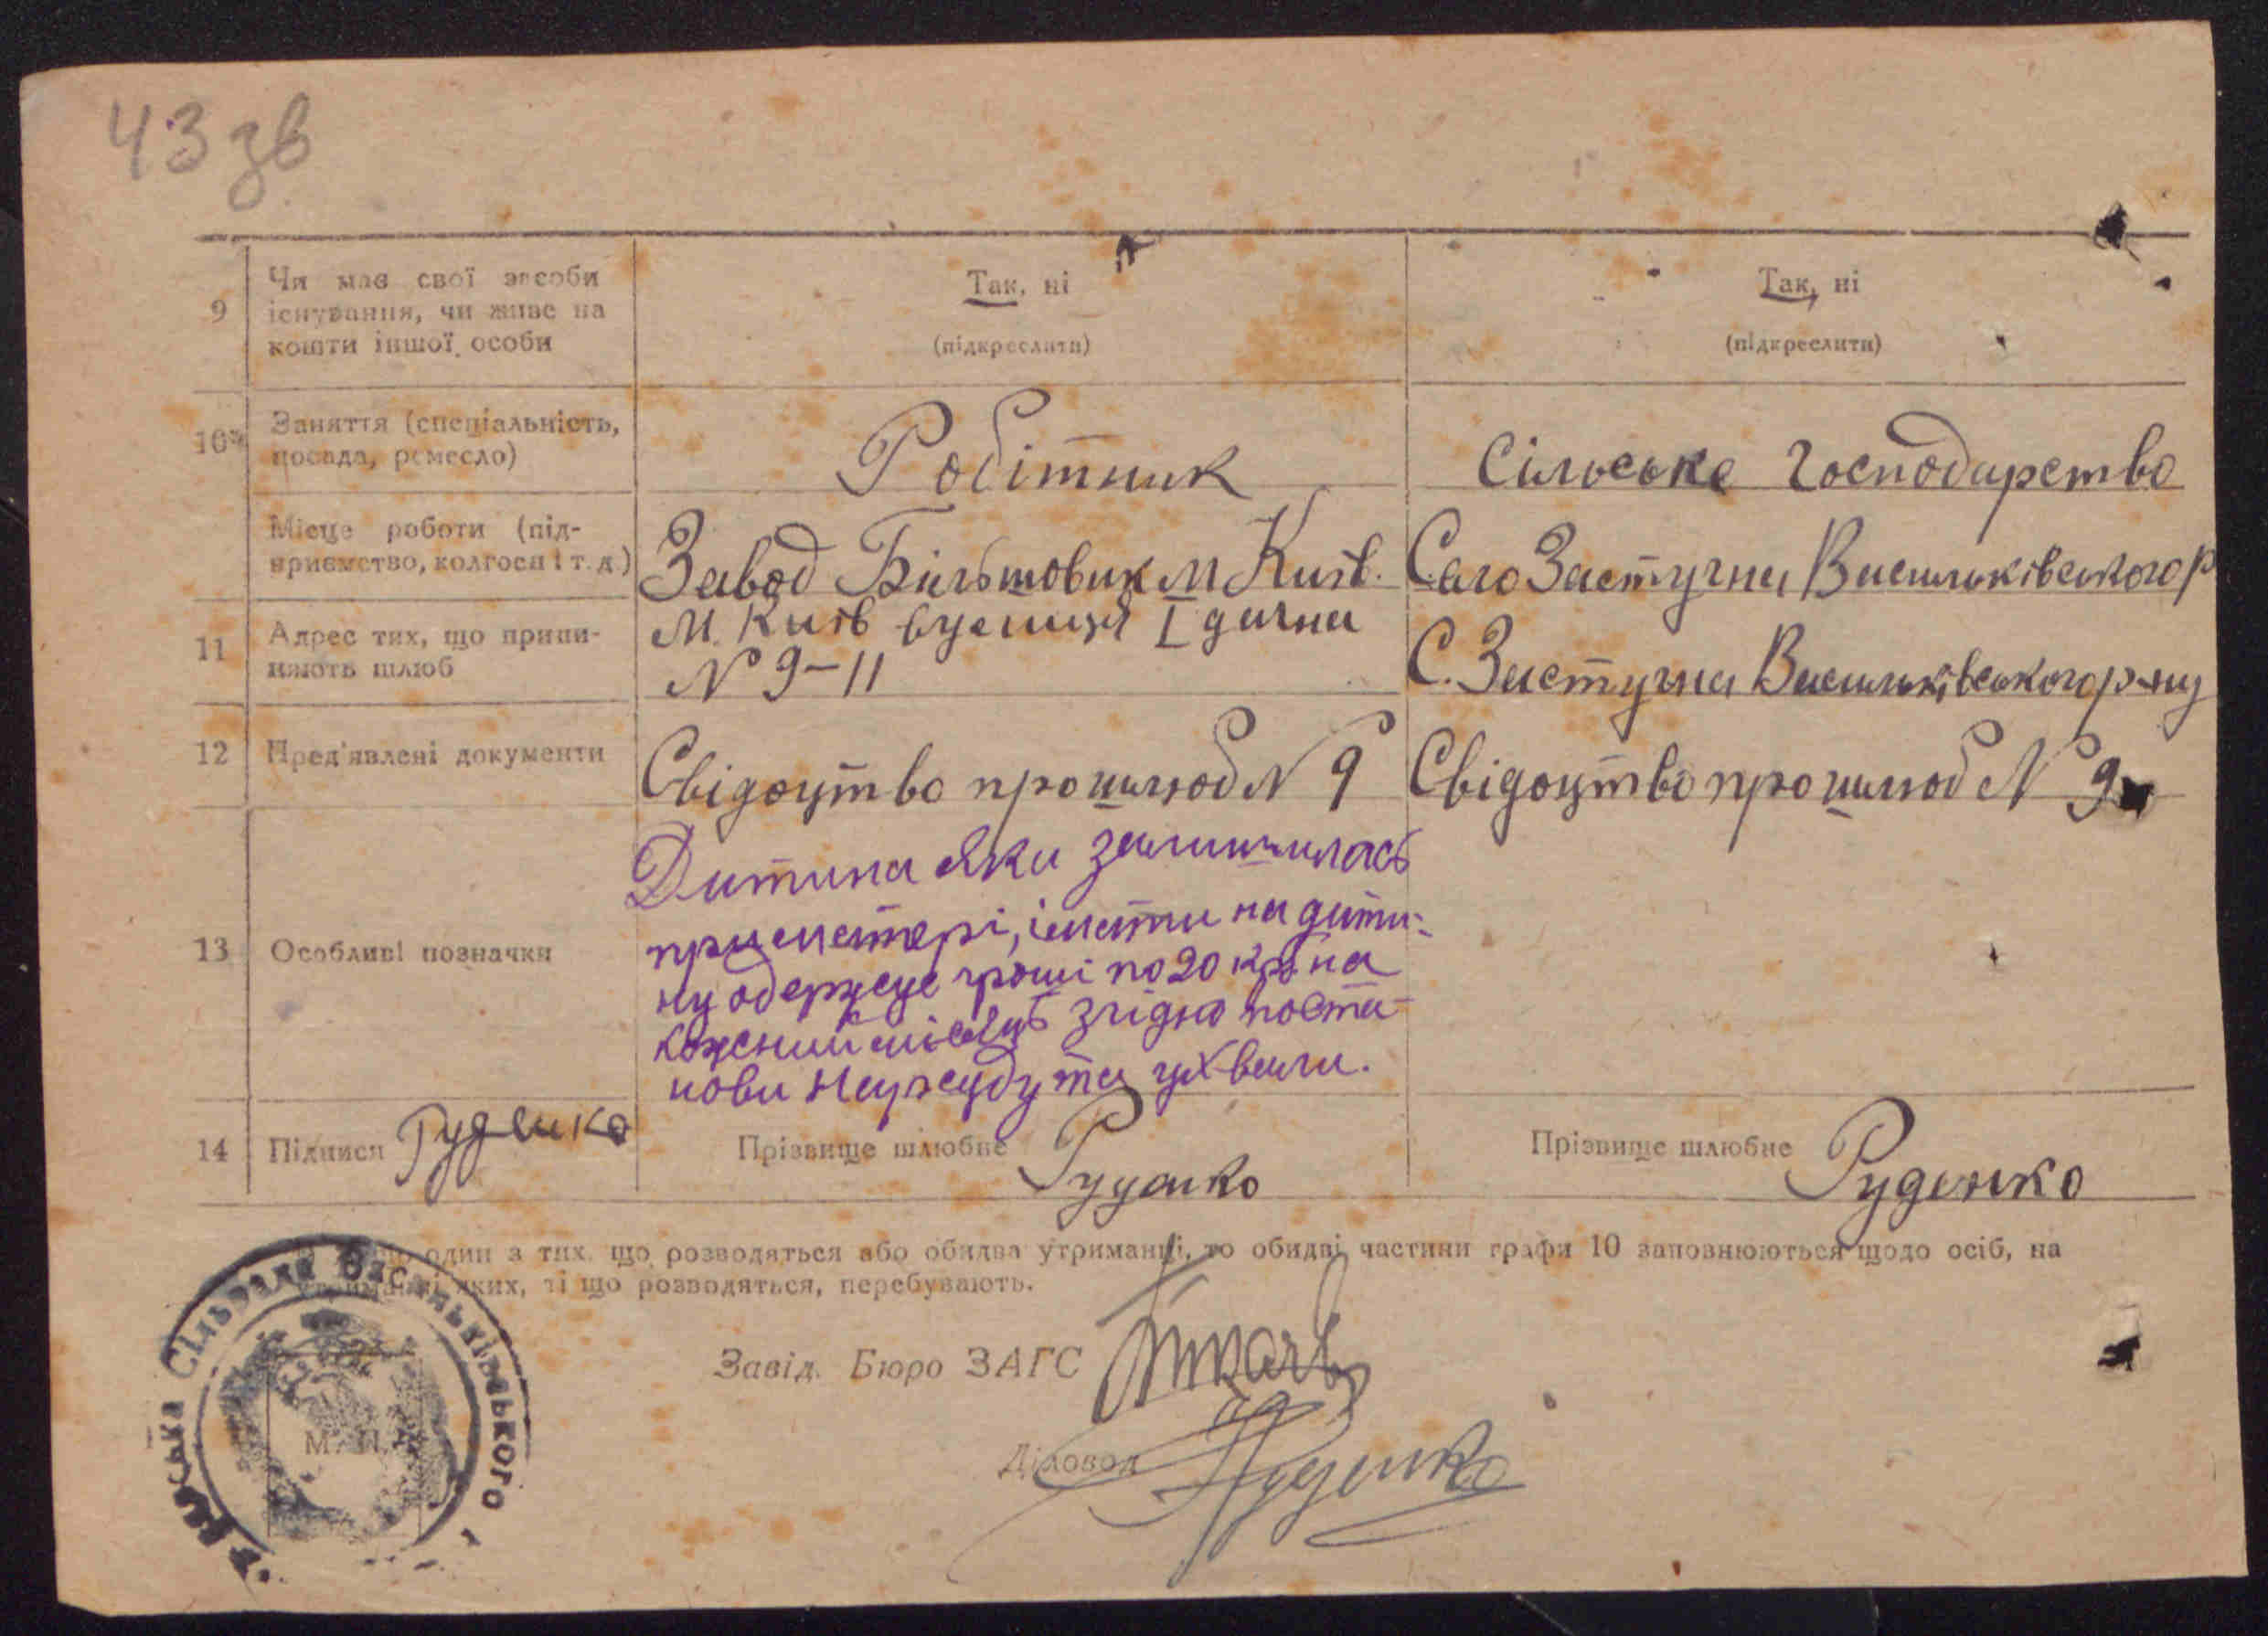 43 зв
9
Чи має свої засоби
існування, чи живе на
кошти іншої особи
Так, ні
(підкреслити)
Так, ні
(підкреслити)
10
Заняття (спеціальність,
посада, ремесло)
Робітник
Сільське господарство
Місце роботи (під-
приємство, колгосп і т. д.)
Завод Більшовик м Київ.
Село Застугна Васильківського р
11
Адрес тих, що припи-
няють шлюб
М. Київ вулиця I дачна
N 9-11
С. Застугна Васильківського р-ну
12
Пред'явлені документи
Свідоцтво про шлюб N 9
Свідоцтво про шлюб N 9
13
Особливі позначки
Дитина яка залишилась
при матері, і мати на дити-
ну одержує гроші по 20 крб на
кожний місяць згідно поста-
нови Нарсуду та ухвали.
14
Підписи
Руденко
Прізвище шлюбне
Руденко
Прізвище шлюбне
Руденко
один з тих, що розводяться або обидва утриманці, то обидві частини графи 10 заповнюються щодо осіб, на
утриманні яких, ті що розводяться, перебувають.
Сільрада Васильківського
М. П.
Завід. Бюро ЗАГС
Діловод